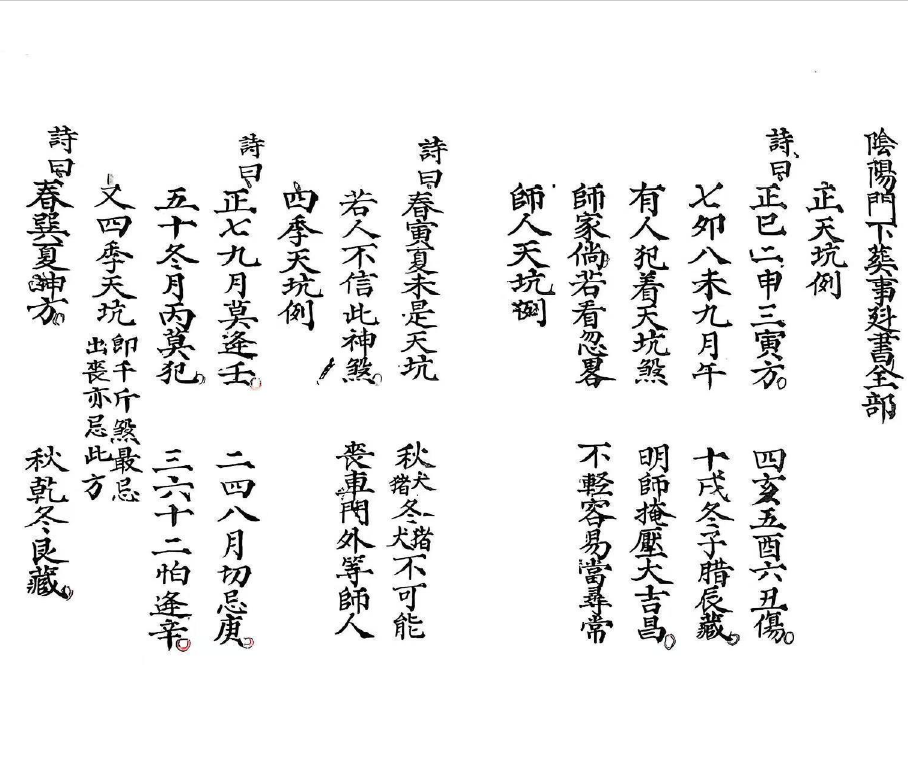 陰陽門下葬事尅書全部
正天坑例
詩曰正巳二申三寅方。 四亥五酉六丑傷。
七卯八未九月午 十戌冬子腊辰藏。
有人犯着天坑煞 明師掩壓大吉昌。
師家倘若看忽畧 不輕容易當尋常
師人天坑例
詩曰春寅夏未是天坑 秋犬猪冬猪犬不可能
若人不信此神煞。 喪車門外等師人
四季天坑例
詩曰正七九月莫逢壬。 二四八月切忌庚。
五十冬月丙莫犯。 三六十二怕逢辛。
又四季天坑 即千斤煞最忌
出喪亦忌此方
詩曰春巽夏坤方。 秋乾冬艮藏。